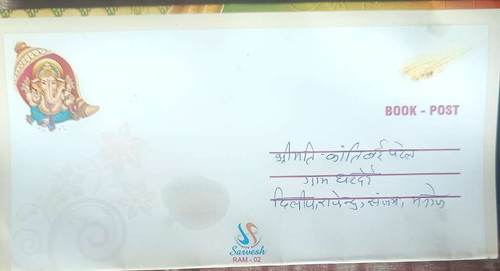 BOOK - POST
श्रीमति कांतिबाई पटेल
ग्राम
दिलीप, राजेन्द्र, संजय, मनोज
Sarvesh
RAM - 02